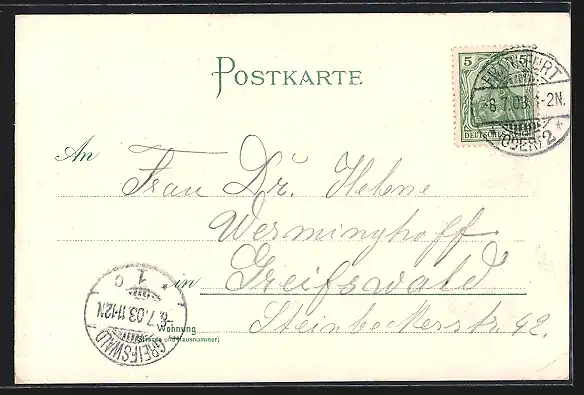 POSTKARTE
5
DEUTSCHES REICH
FRANKFURT
8.7.03. 1-2N.
(ODER) * 2 *
An
Frau Dr. Helene
Werminghoff
in Greifswald
Steinbeckerstr. 42.
Wohnung
(Strasse und Hausnummer)
GREIFSWALD
8.7.03.11-12N
* 1 c